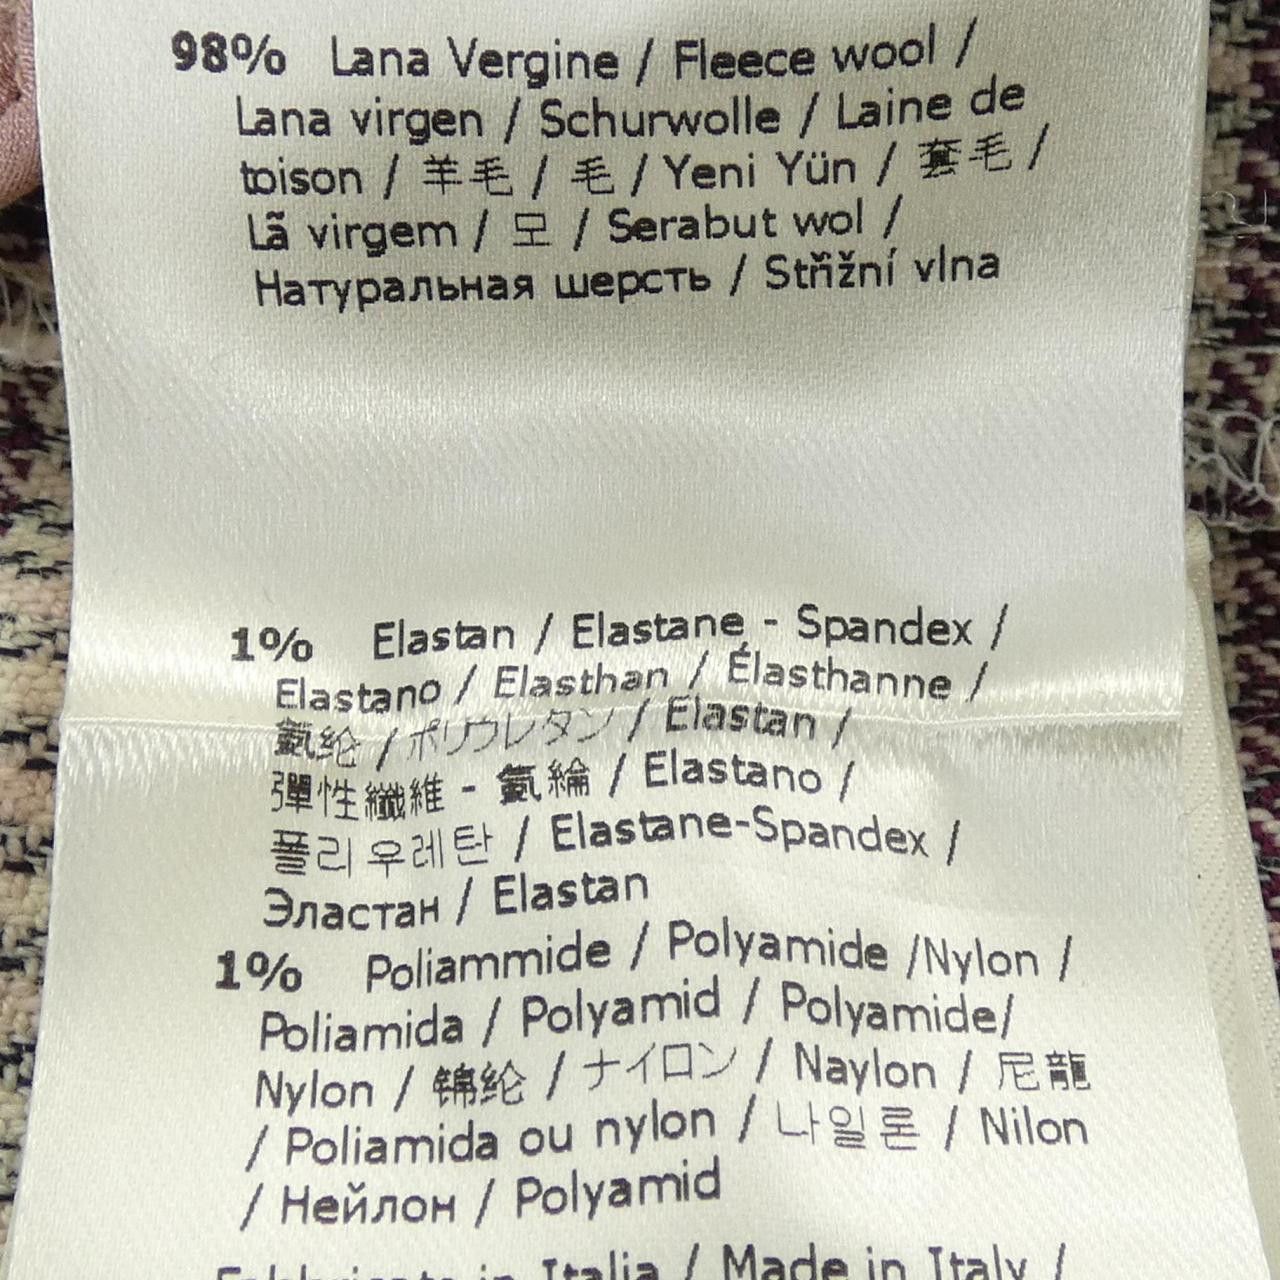 98% Lana Vergine / Fleece wool /
Lana virgen / Schurwolle / Laine de
toison / 羊毛 / 毛 / Yeni Yün / 套毛 /
Lã virgem / 모 / Serabut wol /
Натуральная шерсть / Střižní vlna
1% Elastan / Elastane - Spandex /
Elastano / Elasthan / Élasthanne /
氨纶 / ポリウレタン / Elastan /
彈性纖維 - 氨綸 / Elastano /
폴리우레탄 / Elastane-Spandex /
Эластан / Elastan
1% Poliammide / Polyamide /Nylon /
Poliamida / Polyamid / Polyamide/
Nylon / 锦纶 / ナイロン / Naylon / 尼龍
/ Poliamida ou nylon / 나일론 / Nilon
/ Нейлон / Polyamid
Fabbricato in Italia / Made in Italy /